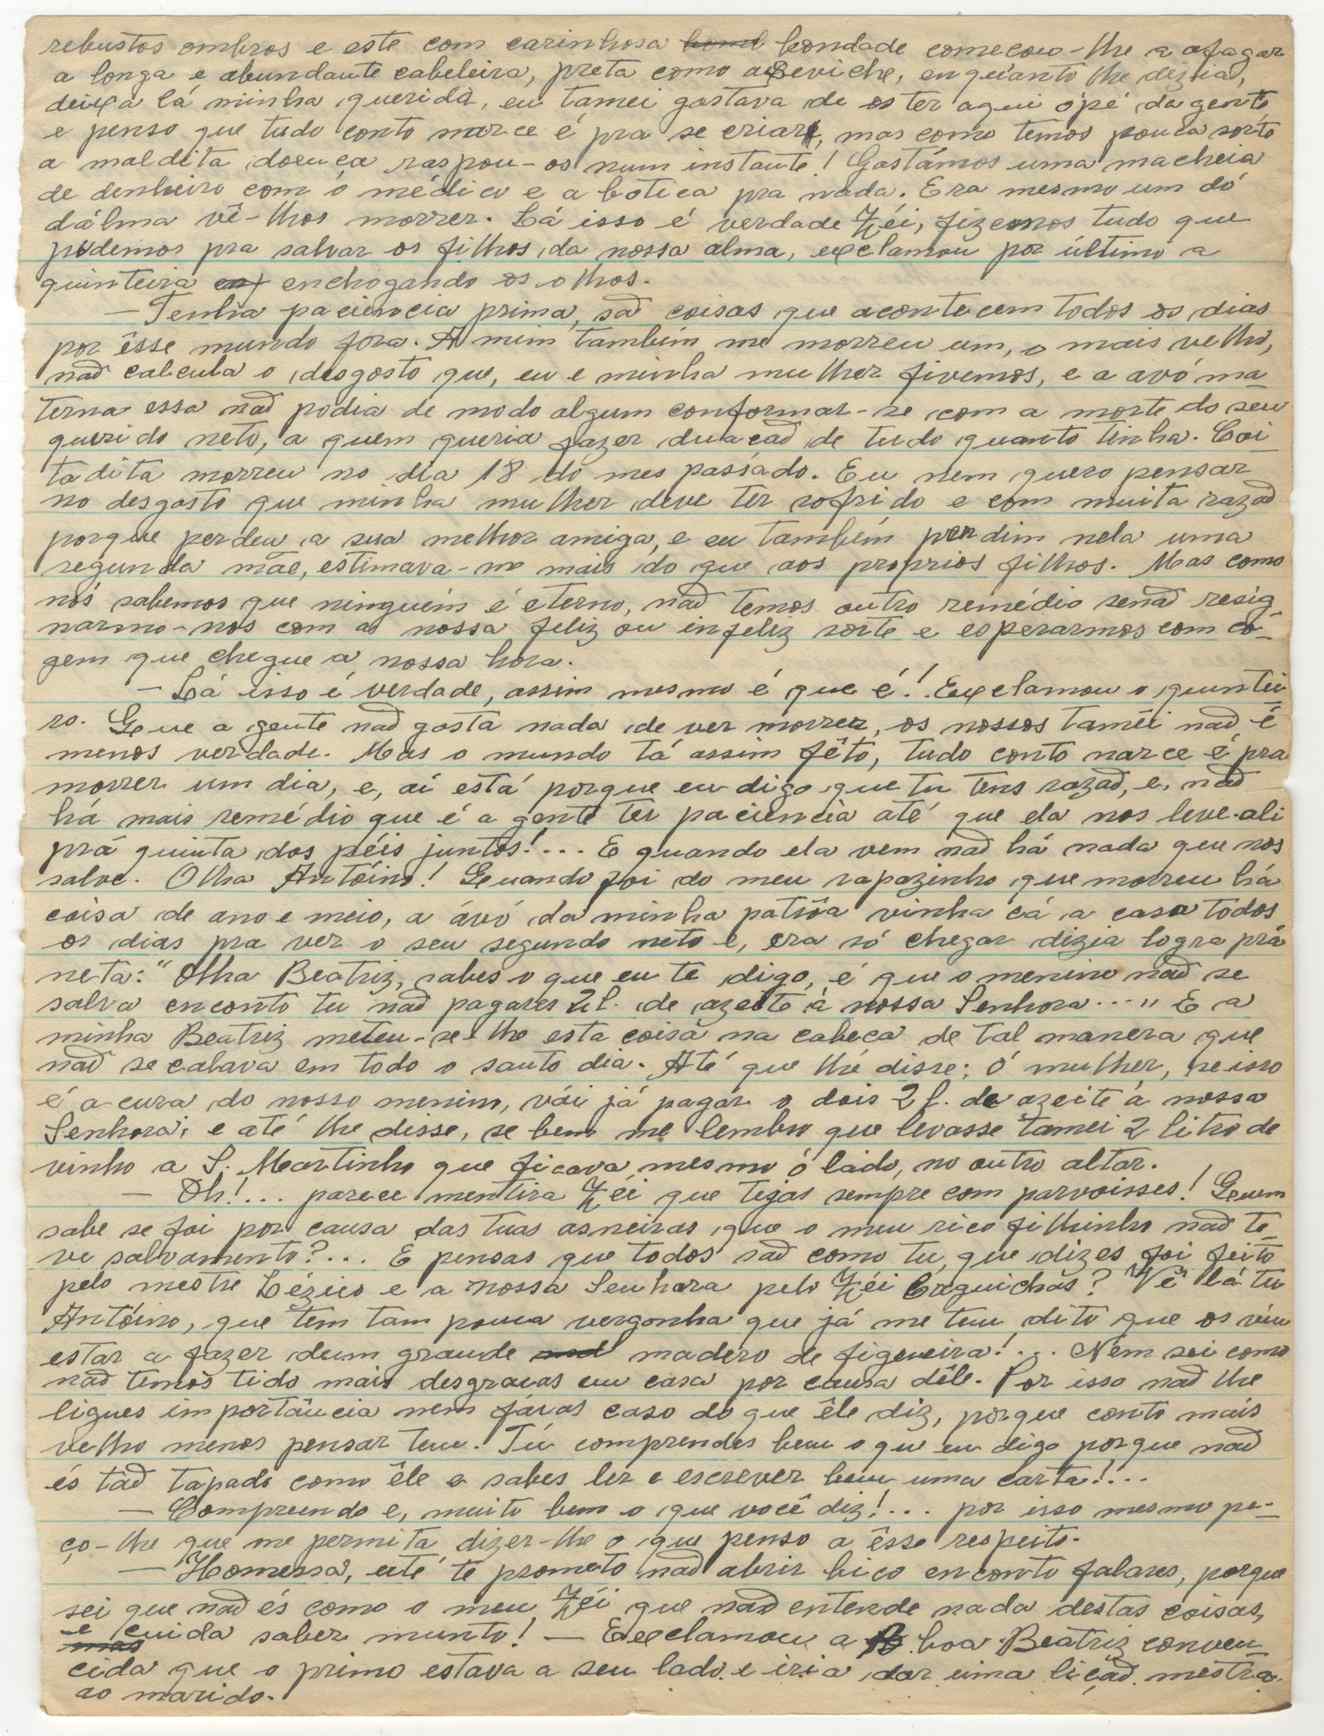 robustos ombros e este com carinhosa bondade começou-lhe a afagar
a longa e abundante cabeleira, preta como azeviche, enquanto lhe dizia,
deixa lá minha querida, eu tamei gostava de os ter aqui ópé da gente
e penso que tudo conto narce é pra se criar, mas como temos pouca sorte
a maldita doença raspou-os num instante! Gastámos uma macheia
de denheiro com ó médico e a botica pra nada. Era mesmo um dó
dálma vê-lhos morrer. Lá isso é verdade Zéi, fizemos tudo que
pudemos pra salvar os filhos da nossa alma, exclamou por último a
quinteira enchogando os olhos.
— Tenha paciencia prima, são coisas que acontecem todos os dias
por êsse mundo fora. A mim também me morreu um, o mais velho,
não calcula o desgosto que, eu e minha mulher tivemos, e a avó ma
terna essa não podia de modo algum conformar-se com a morte do seu
querido neto, a quem queria fazer duação de tudo quanto tinha. Coi-
tadita morreu no dia 18 do mes passado. Eu nem quero pensar
no desgosto que minha mulher deve ter sofrido e com muita razão
porque perdeu a sua melhor amiga, e eu também perdim nela uma
segunda mãe, estimava-me mais do que aos proprios filhos. Mas como
nós sabemos que ninguém é eterno, não temos outro remédio senão resig
narmo-nos com a nossa feliz ou infeliz sorte e esperarmos com có-
gem que chegue a nossa hora.
— Lá isso é verdade, assim mesmo é que é! Exclamou o quintei
ro. Que a gente não gosta nada de ver morrer, os nossos taméi não é
menos verdade. Mas o mundo tá assim fêto, tudo conto narce é pra
morrer um dia, e, aí está porque eu digo que tu tens razão, e, não
há mais remédio que é a gente ter paciencia até que ela nos leve ali
prá quinta dos péis juntos!... E quando ela vem não há nada que nos
salve. Olha Antóino! Quando foi do meu rapazinho que morreu há
coisa de ano e meio, a ávó da minha patrôa vinha cá a casa todos
os dias pra ver o seu segundo neto e, era só chegar dizia logra prá
neta: "Olha Beatriz, sabes o que eu te digo, é que o menino não se
salva enconto tu não pagares 2 l. de azeite á nossa Senhora..." E a
minha Beatriz meteu-se-lhe esta coisa na cabeça de tal manera que
não se calava em todo o santo dia. Até que lhe disse: ó mulher, se isso
é a cura do nosso menino, vái já pagar o dois 2 l. de azeite á nossa
Senhora; e até lhe disse, se bem me lembro que levasse tamei 2 litro de
vinho a S. Martinho que ficava mesmo ó lado, no outro altar.
— Oh!... parece mentira Zéi que tejas sempre com parvoisses! Quem
sabe se foi por causa das tuas asneiras que o meu rico filhinho não te-
ve salvamento?... E pensas que todos são como tu, que dizes foi feito
pelo mestre Lézico e a nossa Senhora pelo Zéi? Vê lá tu
Antóino, que tem tam pouca vergonha que já me tem dito que os viu
estar a fazer dum grande madero de figueira!... Nem sei como
não temos tido mais desgraças em casa por causa dêle. Por isso não lhe
ligues importância nem faças caso do que êle diz, porque conto mais
velho menos pensar tem. Tú comprendes bem o que eu digo porque não
és tão tapado como êle e sabes ler e escrever bem uma carta!...
— Compreendo e, muito bem o que você diz!... por isso mesmo pe-
ço-lhe que me permita dizer-lhe o que penso a êsse respeito.
— Homessa, até te prometo não abrir bico enconto falares, porque
sei que não és como o meu Zéi que não entende nada destas coisas,
e cuida saber munto! — Exclamou a boa Beatriz conven
cida que o primo estava a seu lado e iria dar uma lição mestra
ao marido.